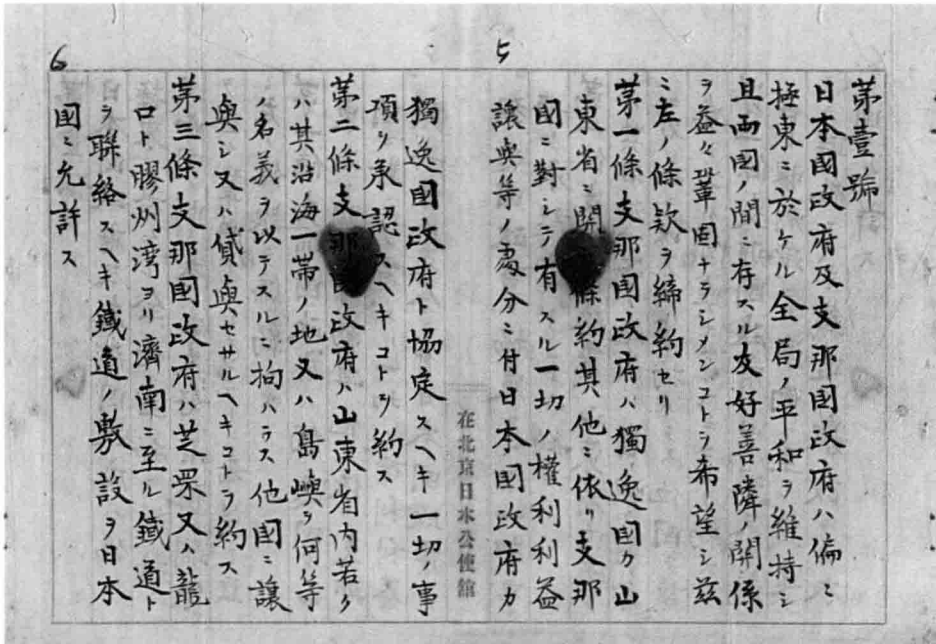 5
第壹號
日本國政府及支那國政府ハ偏ニ
極東ニ於ケル全局ノ平和ヲ維持シ
且両國ノ間ニ存スル友好善隣ノ関係
ヲ益々鞏固ナラシメンコトヲ希望シ茲
ニ左ノ條欵ヲ締約セリ
第一條支那國政府ハ獨逸國カ山
東省ニ関 條約其他ニ依リ支那
國ニ對シテ有スル一切ノ權利利益
讓與等ノ處分ニ付日本國政府カ
在北京日本公使館
6
獨逸國政府ト協定スヘキ一切ノ事
項ヲ承認スヘキコトヲ約ス
第二條支那 政府ハ山東省内若ク
ハ其沿海一帯ノ地又ハ島嶼ヲ何等
ノ名義ヲ以テスルニ拘ハラス他國ニ讓
與シ又ハ貸與セサルヘキコトヲ約ス
第三條支那國政府ハ芝罘又ハ龍
口ト膠州湾ヨリ濟南ニ至ル鐵道ト
ヲ聯絡スヘキ鐵道ノ敷設ヲ日本
國ニ允許ス